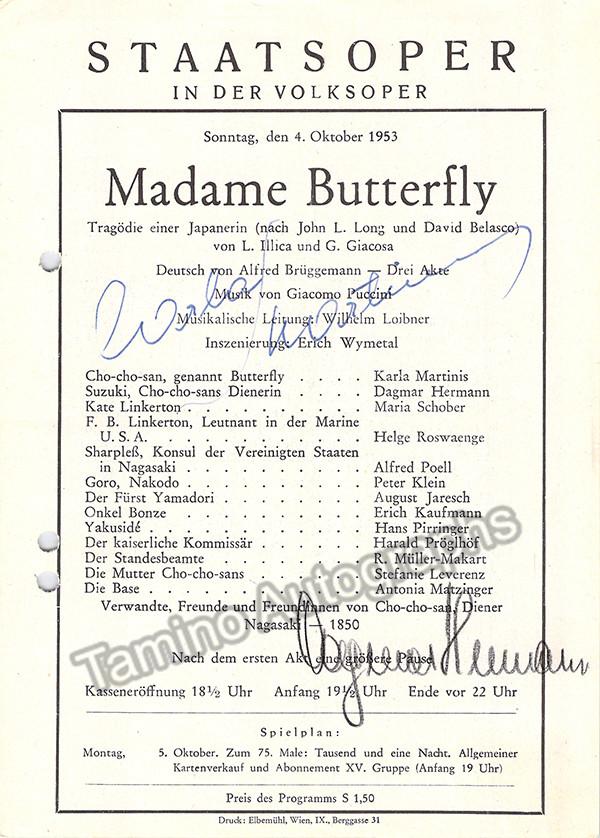 STAATSOPER
IN DER VOLKSOPER
Sonntag, den 4. Oktober 1953
Madame Butterfly
Tragödie einer Japanerin (nach John L. Long und David Belasco)
von L. Illica und G. Giacosa
Deutsch von Alfred Brüggemann — Drei Akte
Musik von Giacomo Puccini
Musikalische Leitung: Wilhelm Loibner
Inszenierung: Erich Wymetal
Karla Martinis
Cho-cho-san, genannt Butterfly . . . . Karla Martinis
Suzuki, Cho-cho-sans Dienerin . . . . Dagmar Hermann
Kate Linkerton . . . . . . . . . . Maria Schober
F. B. Linkerton, Leutnant in der Marine
U. S. A. . . . . . . . . . . . Helge Roswaenge
Sharpleß, Konsul der Vereinigten Staaten
in Nagasaki . . . . . . . . . . Alfred Poell
Goro, Nakodo . . . . . . . . . . Peter Klein
Der Fürst Yamadori . . . . . . . . August Jaresch
Onkel Bonze . . . . . . . . . . Erich Kaufmann
Yakusidé . . . . . . . . . . . Hans Pirringer
Der kaiserliche Kommissär . . . . . . Harald Pröglhöf
Der Standesbeamte . . . . . . . . R. Müller-Makart
Die Mutter Cho-cho-sans . . . . . . Stefanie Leverenz
Die Base . . . . . . . . . . . Antonia Matzinger
Verwandte, Freunde und Freundinnen von Cho-cho-san, Diener
Nagasaki — 1850
Nach dem ersten Akt eine größere Pause
Dagmar Hermann
Kasseneröffnung 18½ Uhr Anfang 19½ Uhr Ende vor 22 Uhr
Spielplan:
Montag, 5. Oktober. Zum 75. Male: Tausend und eine Nacht. Allgemeiner
Kartenverkauf und Abonnement XV. Gruppe (Anfang 19 Uhr)
Preis des Programms S 1,50
Druck: Elbemühl, Wien, IX., Berggasse 31
Tamino Autographs